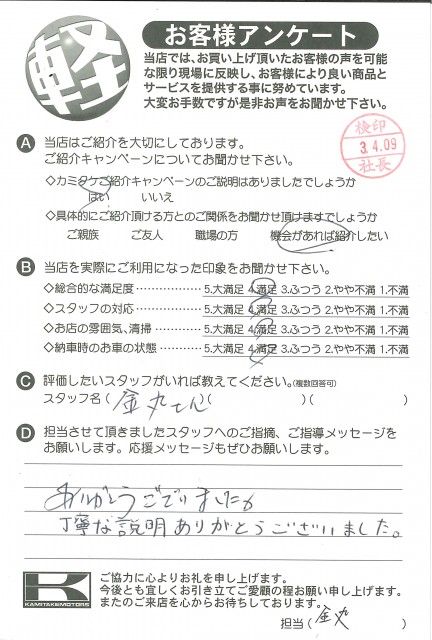 軽
お客様アンケート
当店では、お買い上げ頂いたお客様の声を可能
な限り現場に反映し、お客様により良い商品と
サービスを提供する事に努めています。
大変お手数ですが是非お声をお聞かせ下さい。
検印
3.4.09
社長
A 当店はご紹介を大切にしております。
ご紹介キャンペーンについてお聞かせ下さい。
◇カミタケご紹介キャンペーンのご説明はありましたでしょうか
はい いいえ
◇具体的にご紹介頂ける方とのご関係をお聞かせ頂けますでしょうか
ご親族 ご友人 職場の方 機会があれば紹介したい
B 当店を実際にご利用になった印象をお聞かせ下さい。
◇総合的な満足度 …………… 5.大満足 4.満足 3.ふつう 2.やや不満 1.不満
◇スタッフの対応 …………… 5.大満足 4.満足 3.ふつう 2.やや不満 1.不満
◇お店の雰囲気、清掃 ……… 5.大満足 4.満足 3.ふつう 2.やや不満 1.不満
◇納車時のお車の状態 ……… 5.大満足 4.満足 3.ふつう 2.やや不満 1.不満
C 評価したいスタッフがいれば教えてください。(複数回答可)
スタッフ名 ( 金丸さん )( )( )
D 担当させて頂きましたスタッフへのご指摘、ご指導メッセージを
お願いします。応援メッセージもぜひお願いします。
ありがとうございました。
丁寧な説明ありがとうございました。
K
KAMITAKE MOTORS
ご協力に心よりお礼を申し上げます。
今後とも宜しくお引き立てご愛顧の程お願い申し上げます。
またのご来店を心からお待ちしております。
担当 ( 金丸 )